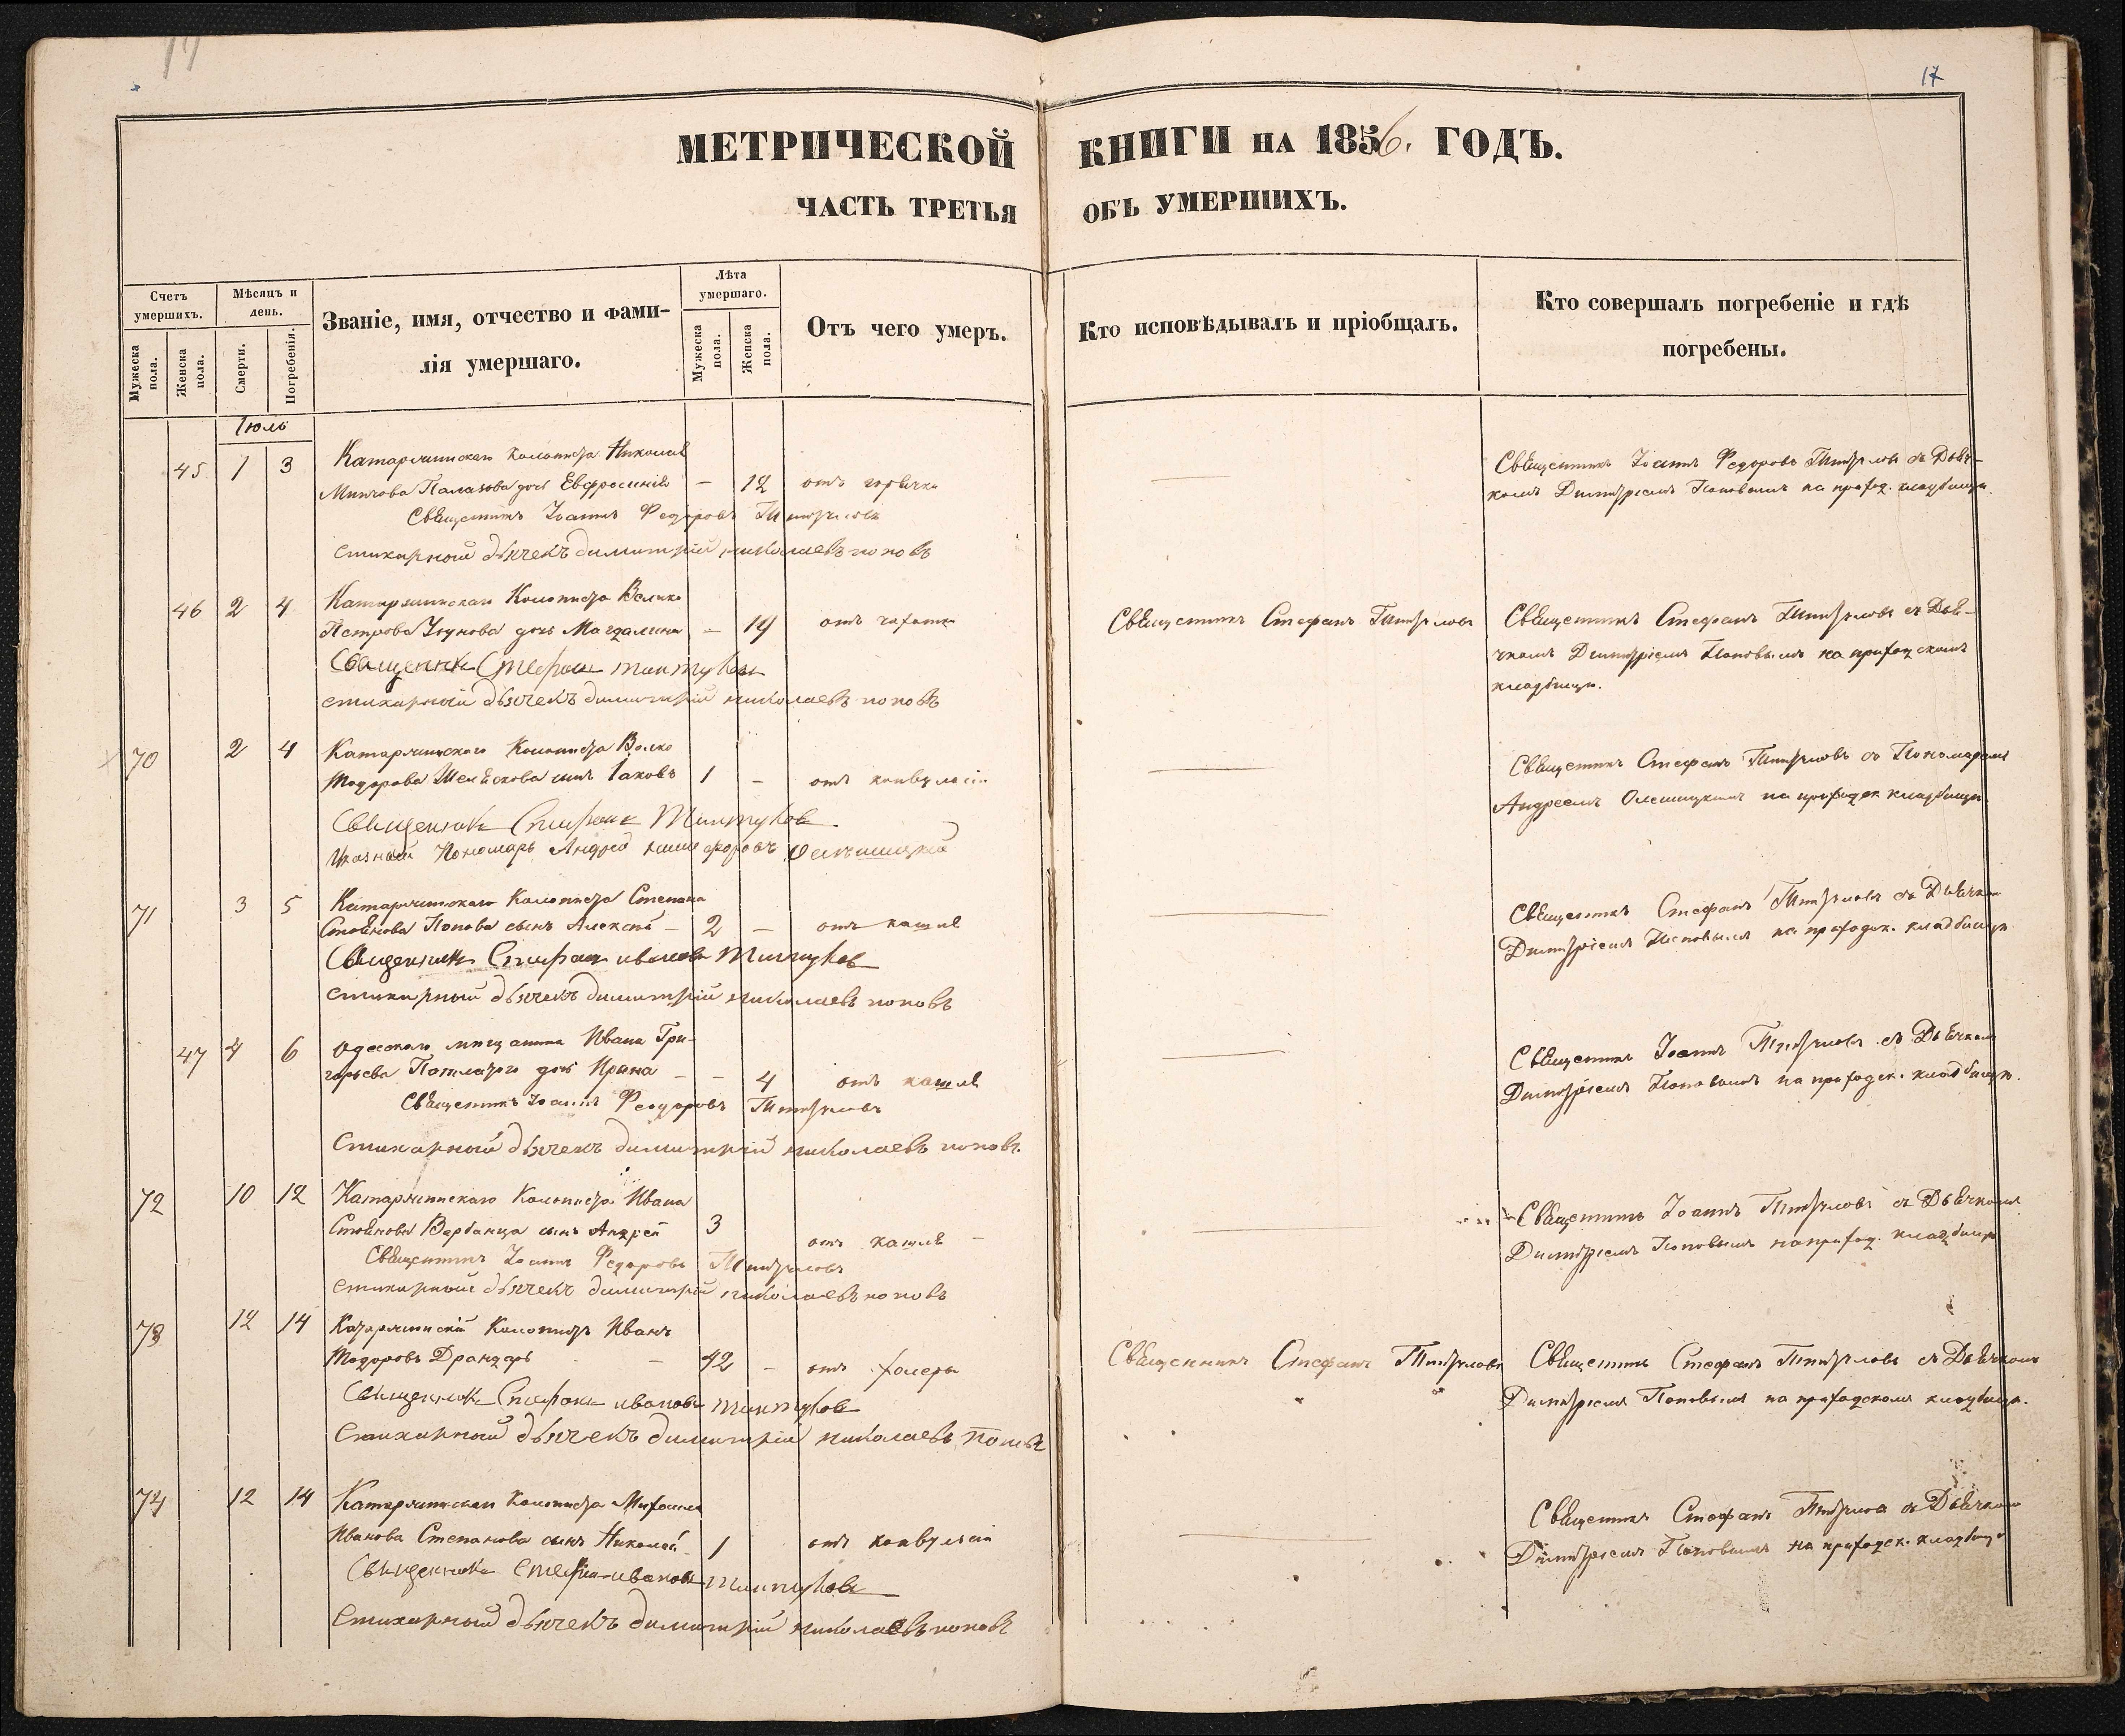 17
МЕТРИЧЕСКОЙ КНИГИ НА 1856. ГОДЪ.
ЧАСТЬ ТРЕТЬЯ ОБЪ УМЕРШИХЪ.
Счетъ умершихъ.
Мужеска пола.
Женска пола.
Мѣсяцъ и день.
Смерти.
Погребенія.
Званіе, имя, отчество и фами-
лія умершаго.
Лѣта умершаго.
Мужеска пола.
Женска пола.
Отъ чего умеръ.
Кто исповѣдывалъ и пріобщалъ.
Кто совершалъ погребеніе и гдѣ
погребены.
Іюль
45 1 3 Катаржинскаго колониста Николая
дочь Евфросинія — 12 отъ горячки
Священникъ Іоаннъ Федоровъ
стихарный дьячекъ димитрій николаевъ поповъ
Священникъ Іоаннъ Федоровъ съ Дьяч-
комъ Димитріемъ Поповымъ на приход. кладбищѣ.
46 2 4 Катаржинскаго Колониста Велико
Петрова дочь Магдалина — 14 отъ чахотки
Священникъ Стефанъ
стихарный дьячекъ димитрій николаевъ поповъ
Священникъ Стефанъ
Священникъ Стефанъ съ Дья-
чкомъ Димитріемъ Поповымъ на приходскомъ
кладбищѣ.
70 2 4 Катаржинскаго Колониста Волко
Тодорова сынъ Іаковъ 1 — отъ конвульсіи
Священникъ Стефанъ
Пономарь Андрей
Священникъ Стефанъ съ Пономаремъ
Андреемъ на приходск кладбищѣ
71 3 5 Катаржинскаго Колониста Степана
Стоянова Попова сынъ Алексѣй — 2 — отъ кашля
Священникъ Стефанъ ивановъ
стихарный дьячекъ димитрій николаевъ поповъ
Священникъ Стефанъ съ Дьячкомъ
Димитріемъ Поповымъ на приходск. кладбищѣ
47 4 6 Одесскаго мѣщанина Ивана Гри-
горьева дочь Ирина — — 4 отъ кашля
Священникъ Іоаннъ Феодоровъ
Стихарный дьячекъ димитрій николаевъ поповъ.
Священникъ Іоаннъ съ Дьячкомъ
Димитріемъ Поповымъ на приходск. кладбищѣ.
72 10 12 Катаржинскаго Колониста Ивана
Стоянова Вербанца сынъ Андрей 3 отъ кашля —
Священникъ Іоаннъ Федоровъ
стихарный дьячекъ димитрій николаевъ поповъ
Священникъ Іоаннъ съ Дьячкомъ
Димитріемъ Поповымъ на приход. кладбищѣ
73 12 14 Катаржинскій Колонистъ Иванъ
Тодоровъ Драндарь — 42 — отъ холеры
Священникъ Стефанъ ивановъ
Стихарный дьячекъ димитрій николаевъ Поповъ
Священникъ Стефанъ
Священникъ Стефанъ съ Дьячкомъ
Димитріемъ Поповымъ на приходскомъ кладбищѣ.
74 12 14 Катаржинскаго Колониста Михаила
Иванова Степанова сынъ Николай 1 отъ конвульсіи
Священникъ Стефанъ ивановъ
Стихарный дьячекъ димитрій николаевъ поповъ
Священникъ Стефанъ съ Дьячкомъ
Димитріемъ Поповымъ на приходск. кладбищѣ